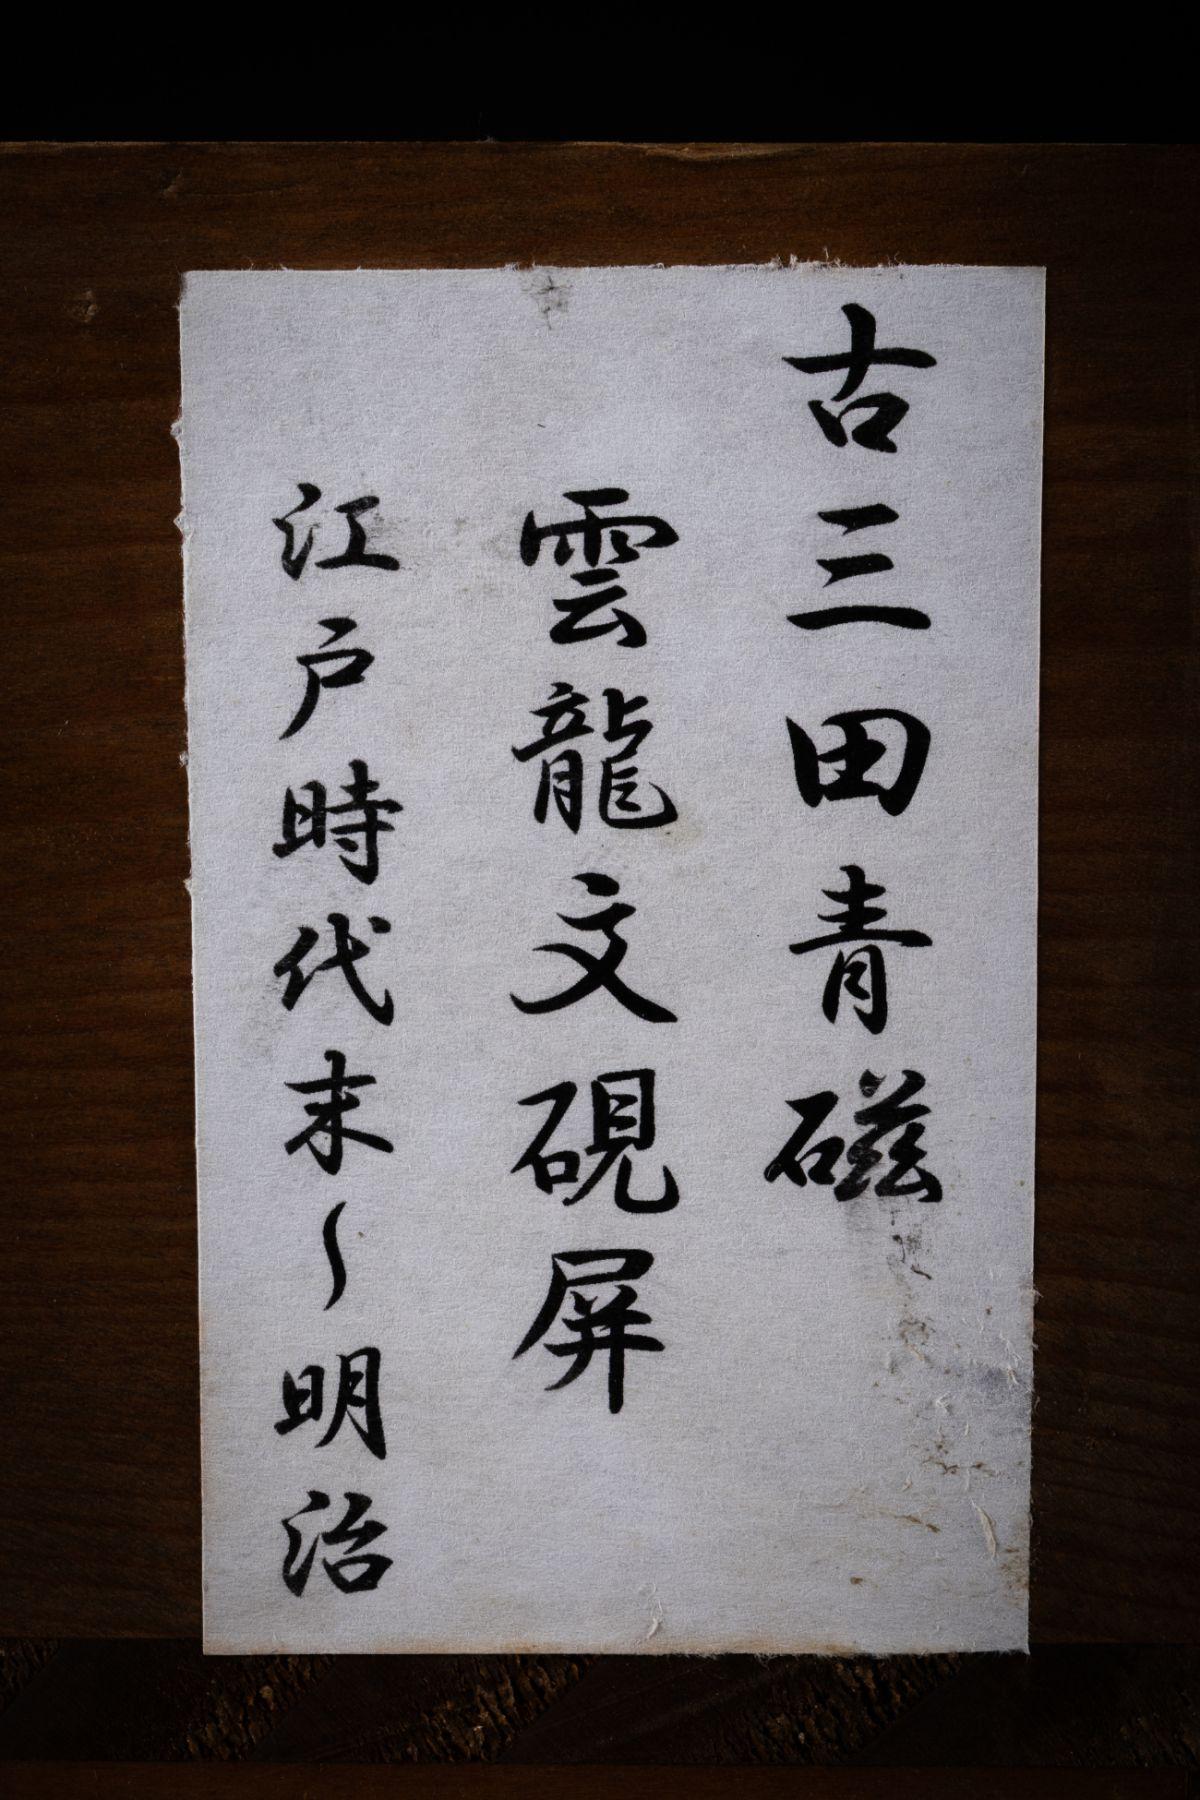 古三田青磁
雲龍文硯屏
江戸時代末〜明治